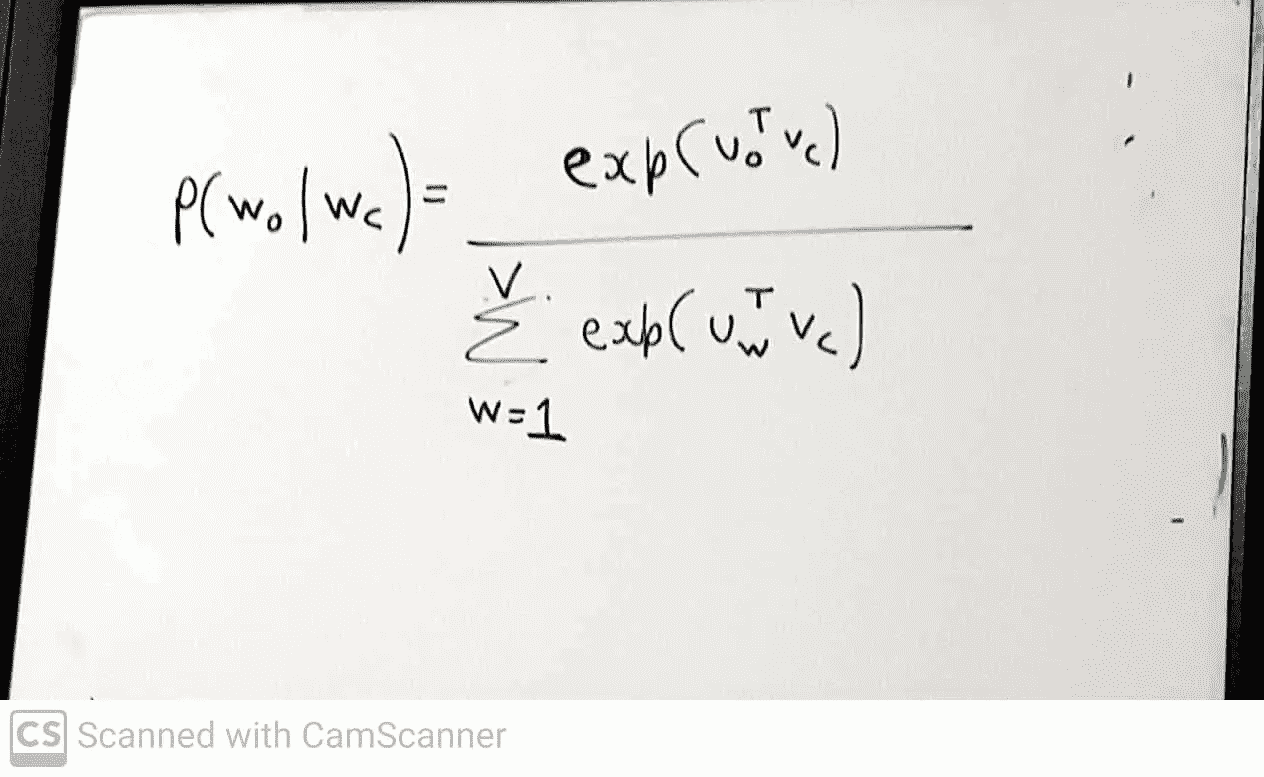 P(w₀|w_c) = exp(u₀ᵀ v_c)
V
Σ exp(u_wᵀ v_c)
w=1
CS Scanned with CamScanner